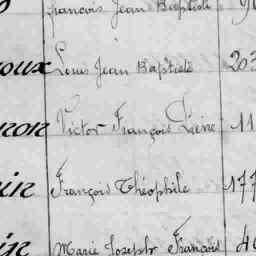 François Jean Baptiste
oux Louis Jean Baptiste 203
non Victor François 11
in François Théophile 177
in Marie Joseph François 4